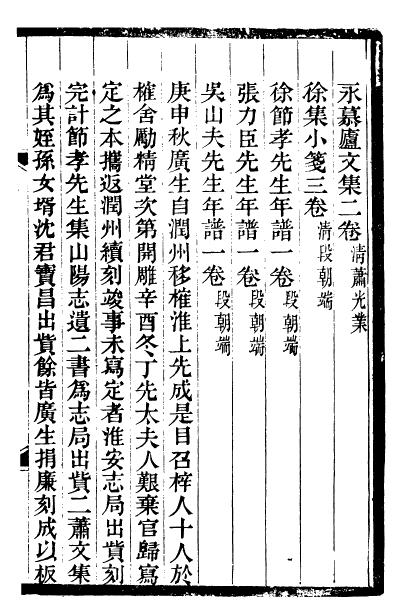 永慕廬文集二卷清蕭光業
徐集小箋三卷清段朝端
徐節孝先生年譜一卷段朝端
張力臣先生年譜一卷段朝端
吳山夫先生年譜一卷段朝端
庚申秋廣生自潤州移榷淮上先成是目召梓人十人於
榷舍勵精堂次第開雕辛酉冬丁先太夫人艱棄官歸寫
定之本攜返潤州續刻竣事未寫定者淮安志局出貲刻
完計節孝先生集山陽志遺二書爲志局出貲二蕭文集
爲其姪孫女壻沈君寶昌出貲餘皆廣生捐廉刻成以板